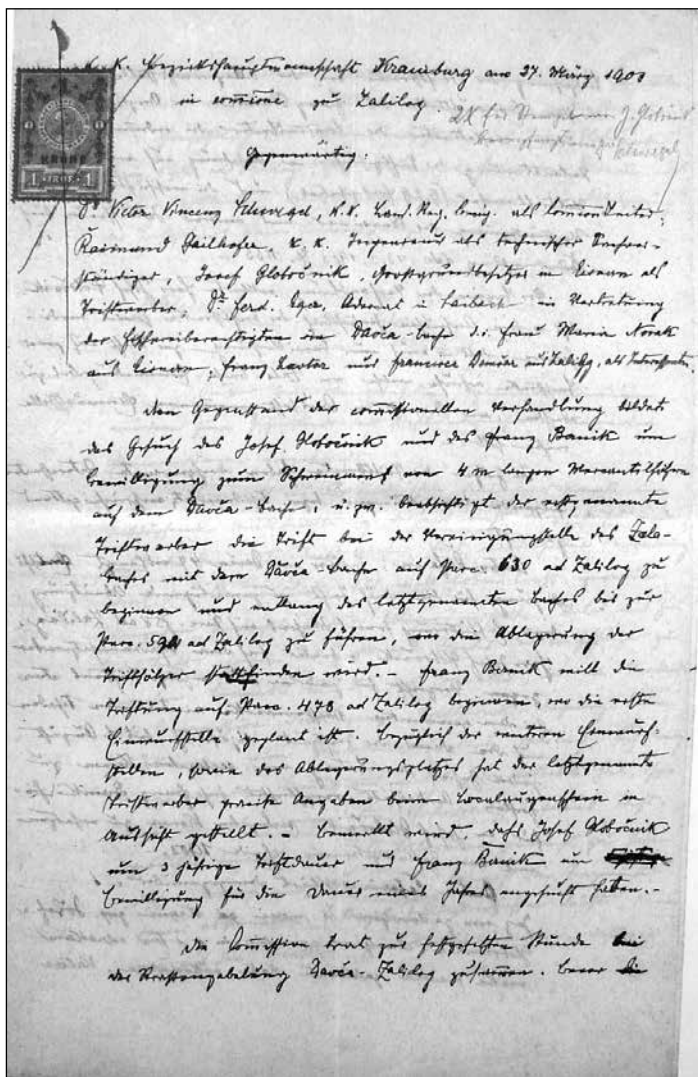 K. K. Bezirkshauptmannschaft Krainburg am 27. März 1900
in commissione zu Zalilog.
2X für J. Globočnik
Gegenwärtig:
KRONE
1 1
Dr Victor Vincenz Schwegel, k.k. Land. Reg. als Commissionsleiter;
Raimund Gailhofer, k. k. Ingenieur als technischer Sachver-
ständiger, Josef Globočnik, Grossgrundbesitzer in Eisnern als
Triftwerber, Dr Ferd. Eger, Advocat in Laibach in Vertretung
der Fischereiberechtigten im Davča-bache d. i. Frau Maria Novak
aus Eisnern, Franz und Francisca aus Zalilog, als Interessenten.
Den Gegenstand der commissionellen Verhandlung bildet
das Gesuch des Josef Globočnik und des Franz Banik um
Bewilligung zum von 4 m langen
auf dem Davča-bache, u. zw. beabsichtigt der erstgenannte
Triftwerber die Trift bei der Vereinigungsstelle des Zala-
baches mit dem Davča-bache auf Parc. 630 ad Zalilog zu
beginnen und entlang des letztgenannten Baches bis zur
Parc. 591 ad Zalilog zu führen, wo die Ablagerung der
Trifthölzer stattfinden wird. – Franz Banik will die
Triftung auf Parc. 478 ad Zalilog beginnen, wo die erste
Einwurfstelle geplant ist. Bezüglich der weiteren Einwurf-
stellen, sowie des Ablagerungsplatzes hat der letztgenannte
Triftwerber Angaben beim Localaugenschein in
Aussicht gestellt. – Bemerkt wird, dass Josef Globočnik
um 3 jährige Triftdauer und Franz Banik um
Bewilligung für die Dauer eines Jahres angesucht haben. –
Die Commission trat zur festgesetzten Stunde bei
der Strassengabelung Davča-Zalilog zusammen. Bevor die